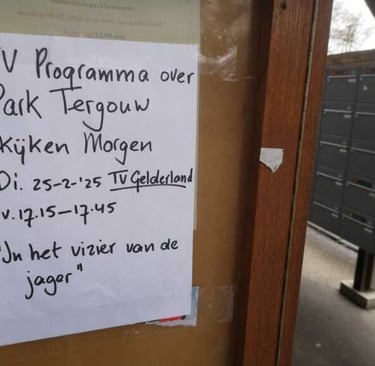 V Programma over
Park Tergouw
Kijken Morgen
Di. 25-2-'25 TV Gelderland
v. 17.15-17.45
"In het vizier van de
jager"